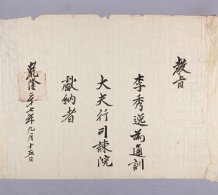 教旨
李秀逸為通訓
大夫行司諫院
獻納者
乾隆三十七年九月十五日